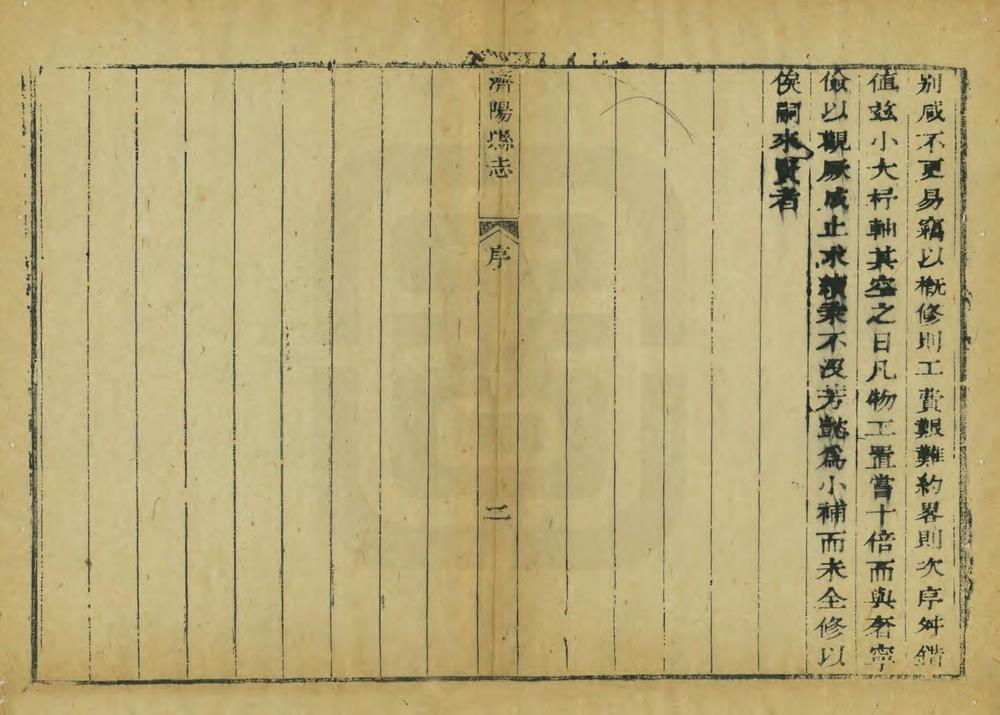 別咸不更易竊以概修則工費艱難約畧則次序舛錯
值兹小大杼軸其空之日凡物工置嘗十倍而與奢寧
儉以觀厥成止求續乘不沒芳懿為小補而未全修以
俟嗣來賢者
濟陽縣志
序
二